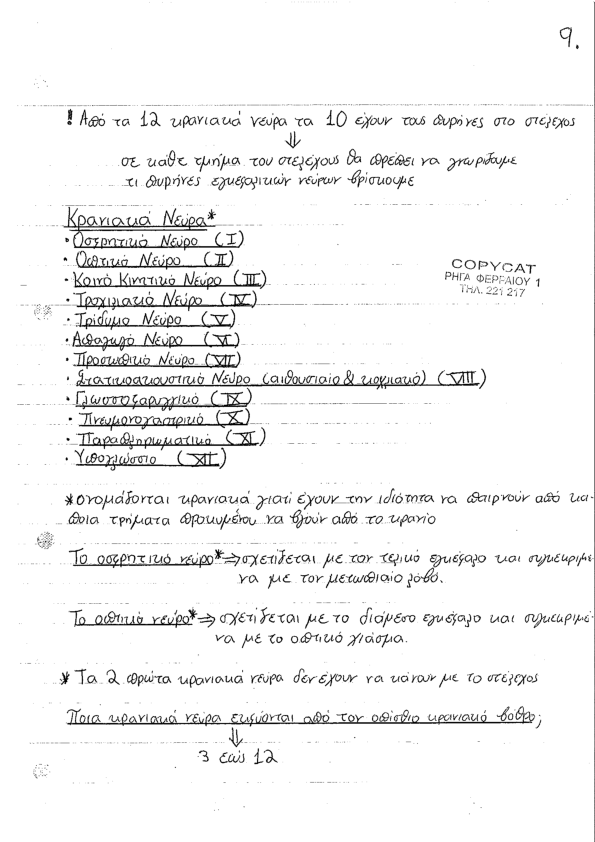 9.
! Από τα 12 κρανιακά νεύρα τα 10 έχουν τους πυρήνες στο στέλεχος
⇓
σε κάθε τμήμα του στελέχους θα πρέπει να γνωρίζουμε
τι πυρήνες εγκεφαλικών νεύρων βρίσκουμε
Κρανιακά Νεύρα*
· Οσφρητικό Νεύρο (I)
· Οπτικό Νεύρο (II)
· Κοινό Κινητικό Νεύρο (III)
· Τροχιλιακό Νεύρο (IV)
· Τρίδυμο Νεύρο (V)
· Απαγωγό Νεύρο (VI)
· Προσωπικό Νεύρο (VII)
· Στατικοακουστικό Νεύρο (αιθουσαίο & κοχλιακό) (VIII)
· Γλωσσοφαρυγγικό (IX)
· Πνευμονογαστρικό (X)
· Παραπληρωματικό (XI)
· Υπογλώσσιο (XII)
COPYCAT
ΡΗΓΑ ΦΕΡΡΑΙΟΥ 1
ΤΗΛ. 221 217
*ονομάζονται κρανιακά γιατί έχουν την ιδιότητα να παίρνουν από κά-
ποια τρήματα προκυμένου να βγούν από το κρανίο
Το οσφρητικό νεύρο* ⇒ σχετίζεται με τον τελικό εγκέφαλο και συγκεκριμέ-
να με τον μετωπιαίο λοβό.
Το οπτικό νεύρο* ⇒ σχετίζεται με το διάμεσο εγκέφαλο και συγκεκριμέ-
να με το οπτικό χίασμα.
* Τα 2 πρώτα κρανιακά νεύρα δεν έχουν να κάνουν με το στέλεχος
Ποια κρανιακά νεύρα εκφύονται από τον οπίσθιο κρανιακό βόθρο;
⇓
3 έως 12